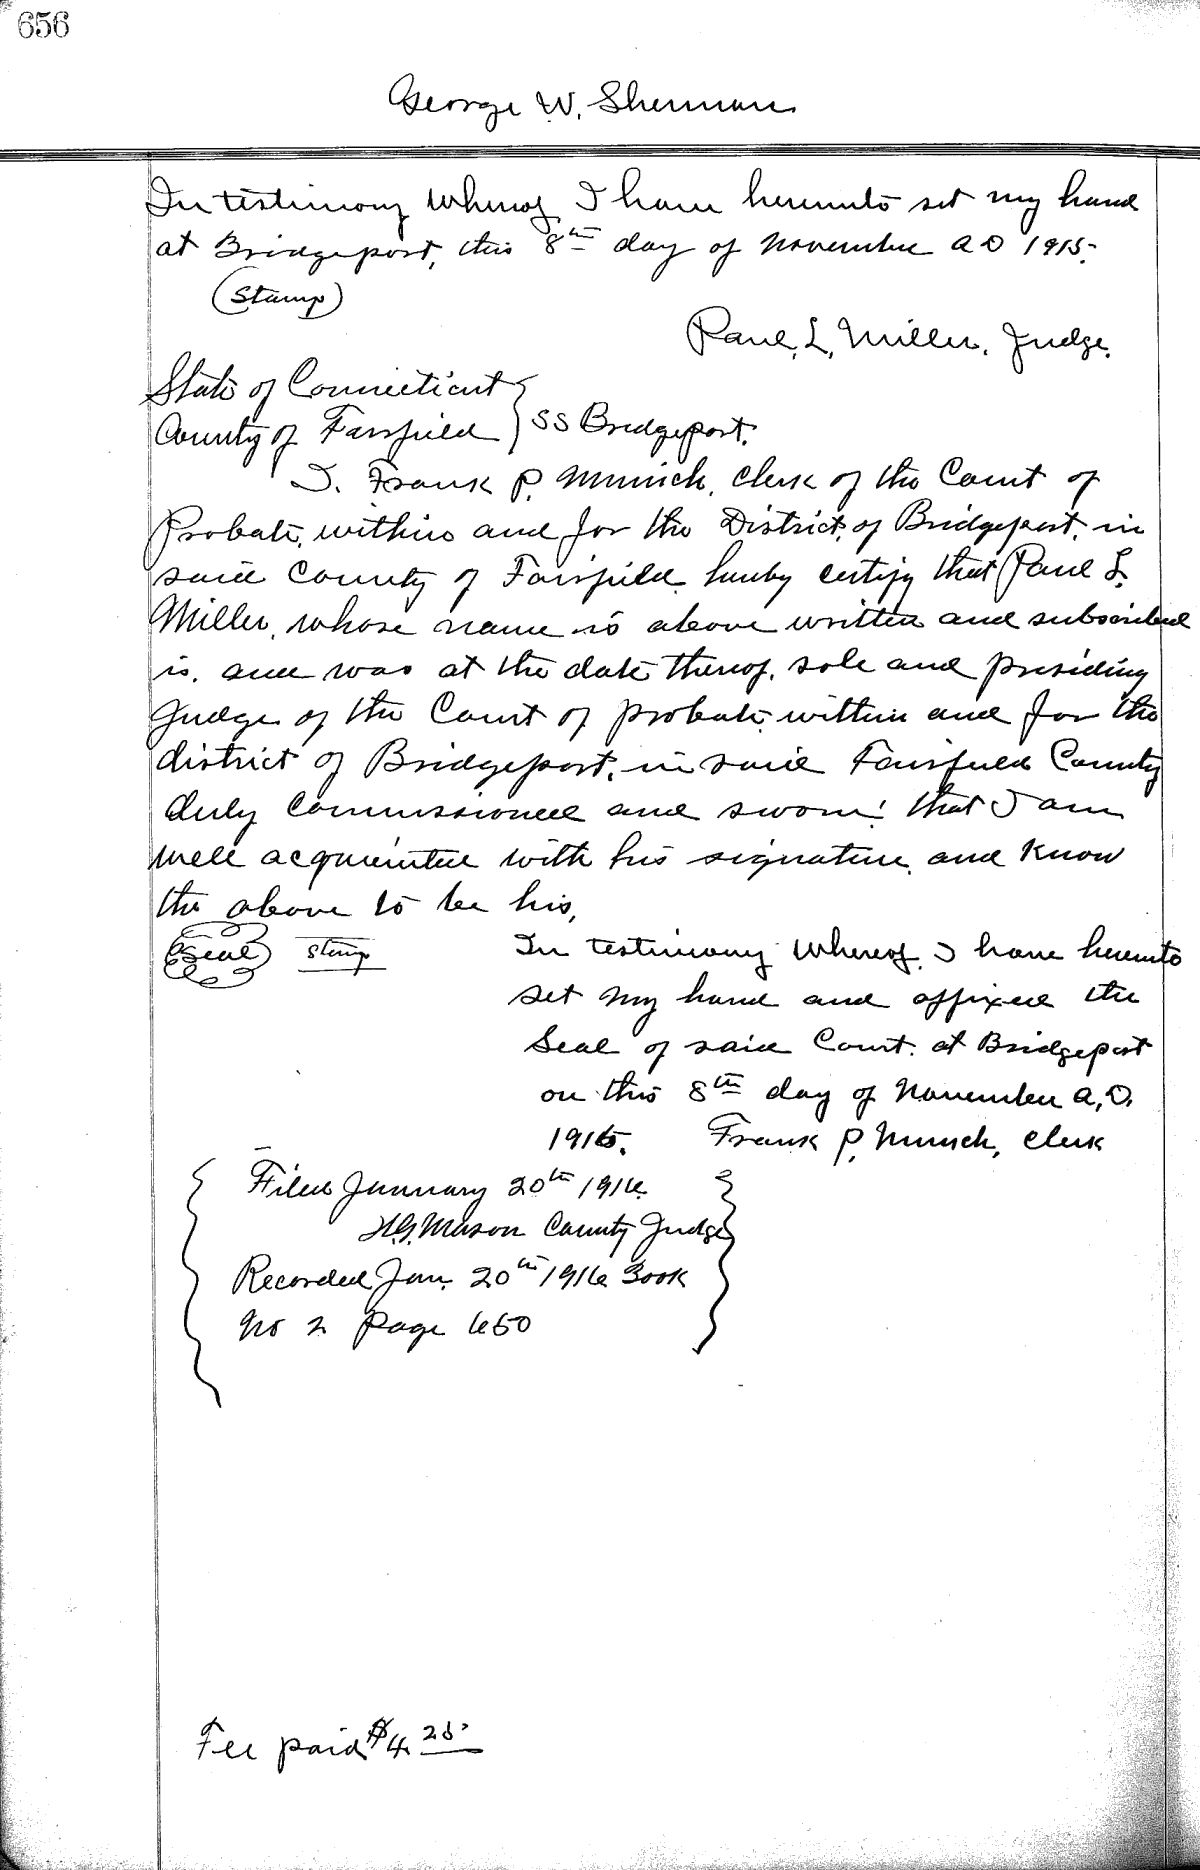 656
George W. Sherman
In testimony Whereof I have hereunto set my hand
at Bridgeport, this 8th day of November A D 1915.
(Stamp)
Paul, L, Miller, Judge.
State of Connecticut
County of Fairfield } SS Bridgeport.
I. Frank P. Munich, Clerk of the Court of
Probate, within and for the District, of Bridgeport, in
said County of Fairfield hereby certify that Paul L.
Miller, whose name is above written and subscribed
is, and was at the date thereof, sole and presiding
Judge of the Court of probate, within and for the
district of Bridgeport, in said Fairfield County
duly commissioned and sworn: that I am
well acquainted with his signature, and know
the above to be his,
(Seal) Stamp In testimony Whereof, I have hereunto
set my hand and affixed the
Seal of said Court. at Bridgeport
on this 8th day of November A,D.
1915. Frank P, Munich, Clerk
Filed January 20th 1916.
H.G. Mason County Judge
Recorded Jan. 20th 1916 Book
No 2 Page 650
Fee paid $4.25